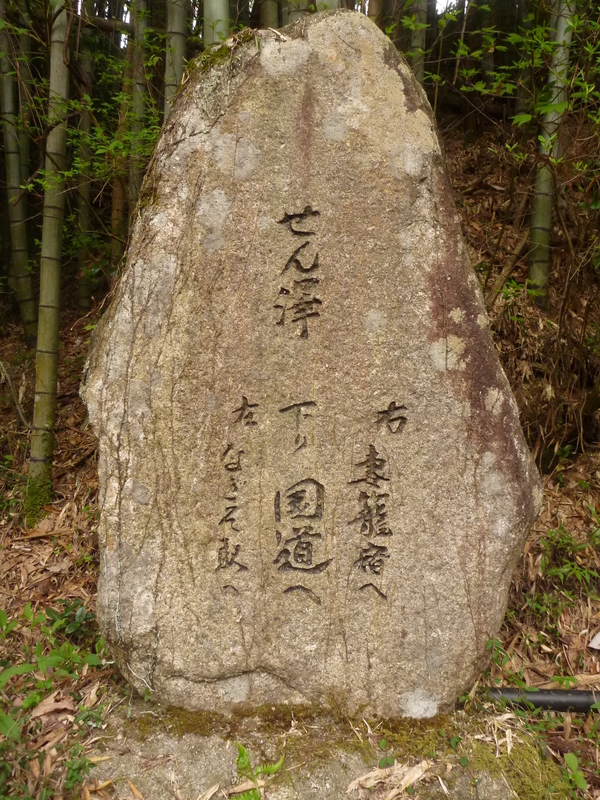 右 妻籠宿へ
せん澤 下り 国道へ
左 なぎそ駅へ